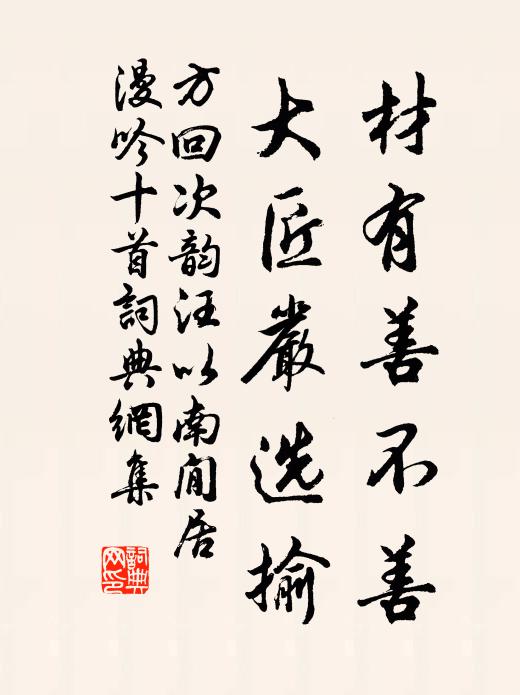 材有善不善
大匠嚴选掄
方回次韵汪以南閒居
漫吟十首詞典網集
詞典网印